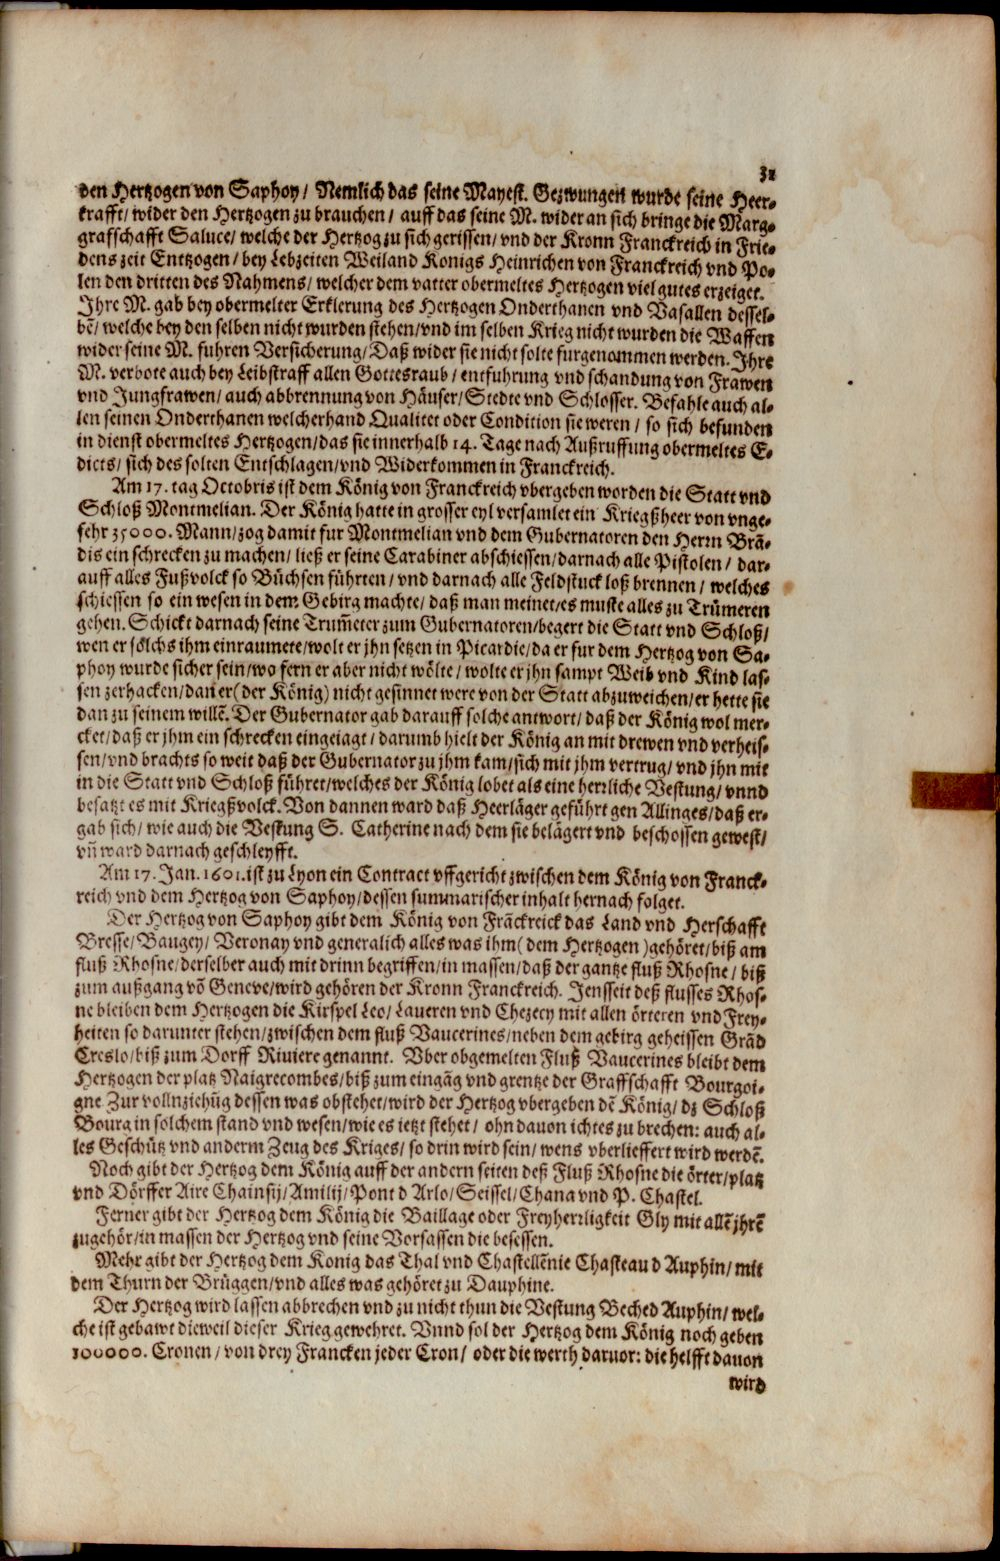 31
den Hertzogen von Saphoy/ Nemlich das seine Mayest. Gezwungen wurde seine Heer-
krafft/ wider den Hertzogen zu brauchen/ auff das seine M. wider an sich bringe die Marg-
grafschafft Saluce/ welche der Hertzog zu sich gerissen/ vnd der Kronn Franckreich in Frie-
dens zeit Enttzogen/ bey Lebzeiten Weiland Konigs Heinrichen von Franckreich vnd Po-
len den dritten des Nahmens/ welcher dem vatter obermeltes Hertzogen viel gutes erzeiget.
Ihre M. gab bey obermelter Erklerung des Hertzogen Onderthanen vnd Vasallen dessel-
bẽ/ welche bey den selben nicht wurden stehen/ vnd im selben Krieg nicht wurden die Waffen
wider seine M. fuhren Versicherung/ Daß wider sie nicht solte furgenommen werden. Ihre
M. verbote auch bey Leibstraff allen Gottesraub/ entfuhrung vnd schandung von Frawen
vnd Jungfrawen/ auch abbrennung von Häuser/ Stedte vnd Schlosser. Befahle auch al-
len seinen Onderthanen welcherhand Qualitet oder Condition sie weren/ so sich befunden
in dienst obermeltes Hertzogen/ das sie innerhalb 14. Tage nach Außruffung obermeltes E-
dicts/ sich des solten Entschlagen/ vnd Widerkommen in Franckreich.
Am 17. tag Octobris ist dem König von Franckreich vbergeben worden die Statt vnd
Schloß Montmelian. Der König hatte in grosser eyl versamlet ein Kriegßheer von vnge-
fehr 35000. Mann/ zog damit fur Montmelian vnd dem Gubernatoren den Herrn Brã-
dis ein schrecken zu machen/ ließ er seine Carabiner abschiessen/ darnach alle Pistolen/ dar-
auff alles Fußvolck so Büchsen führten/ vnd darnach alle Feldstuck loß brennen/ welches
schiessen so ein wesen in dem Gebirg machte/ daß man meinet/ es muste alles zu Trümeren
gehen. Schickt darnach seine Trum̃eter zum Gubernatoren/ begert die Statt vnd Schloß/
wen er sölchs ihm einraumete/ wolt er jhn setzen in Picardie/ da er fur dem Hertzog von Sa-
phoy wurde sicher sein/ wo fern er aber nicht wölte/ wolte er jhn sampt Weib vnd Kind las-
sen zerhacken/ dan er (der König) nicht gesinnet were von der Statt abzuweichen/ er hette sie
dan zu seinem willẽ. Der Gubernator gab darauff solche antwort/ daß der König wol mer-
cket/ daß er jhm ein schrecken eingeiagt/ darumb hielt der König an mit drewen vnd verheis-
sen/ vnd brachts so weit daß der Gubernator zu jhm kam/ sich mit jhm vertrug/ vnd jhn mit
in die Statt vnd Schloß führet/ welches der König lobet als eine herrliche Vestung/ vnnd
besatzt es mit Kriegßvolck. Von dannen ward daß Heerläger geführt gen Allinges/ daß er-
gab sich/ wie auch die Vestung S. Catherine nach dem sie belägert vnd beschossen gewest/
vñ ward darnach geschleyfft.
Am 17. Jan. 1601. ist zu Lyon ein Contract vffgericht zwischen dem König von Franck-
reich vnd dem Hertzog von Saphoy/ dessen summarischer inhalt hernach folget.
Der Hertzog von Saphoy gibt dem König von Frãckreick das Land vnd Herschafft
Bresse/ Baugey/ Veronay vnd generalich alles was ihm (dem Hertzogen) gehöret/ biß am
fluß Rhosne/ derselber auch mit drinn begriffen/ in massen/ daß der gantze fluß Rhosne/ biß
zum außgang võ Geneve/ wird gehören der Kronn Franckreich. Jensseit deß flusses Rhos-
ne bleiben dem Hertzogen die Kirspel Leo/ Laueren vnd Chezecy mit allen örteren vnd Frey-
heiten so darunter stehen/ zwischen dem fluß Vaucerines/ neben dem gebirg geheissen Grãd
Creslo/ biß zum Dorff Riuiere genannt. Vber obgemelten Fluß Vaucerines bleibt dem
Hertzogen der platz Naigrecombes/ biß zum eingãg vnd grentze der Graffschafft Bourgoi-
gne Zur vollnziehũg dessen was obstehet/ wird der Hertzog vbergeben dẽ König/ dz Schloß
Bourg in solchem stand vnd wesen/ wie es ietzt stehet/ ohn dauon ichtes zu brechen: auch al-
les Geschütz vnd anderm Zeug des Kriges/ so drin wird sein/ wens vberlieffert wird werdẽ.
Noch gibt der Hertzog dem König auff der andern seiten deß Fluß Rhosne die örter/ platz
vnd Dörffer Aire Chainsij/ Amilij/ Pont d Arlo/ Seissel/ Chana vnd P. Chastel.
Ferner gibt der Hertzog dem König die Baillage oder Freyherrligkeit Gly mit allẽ jhrẽ
zugehör/ in massen der Hertzog vnd seine Vorsassen die besessen.
Mehr gibt der Hertzog dem Konig das Thal vnd Chastellẽnie Chasteau d Auphin/ mit
dem Thurn der Brüggen/ vnd alles was gehöret zu Dauphine.
Der Hertzog wird lassen abbrechen vnd zu nicht thun die Vestung Beched Auphin/ wel-
che ist gebawt dieweil dieser Krieg gewehret. Vnnd sol der Hertzog dem König noch geben
100000. Cronen/ von drey Francken jeder Cron/ oder die werth daruor: die helfft dauon
wird